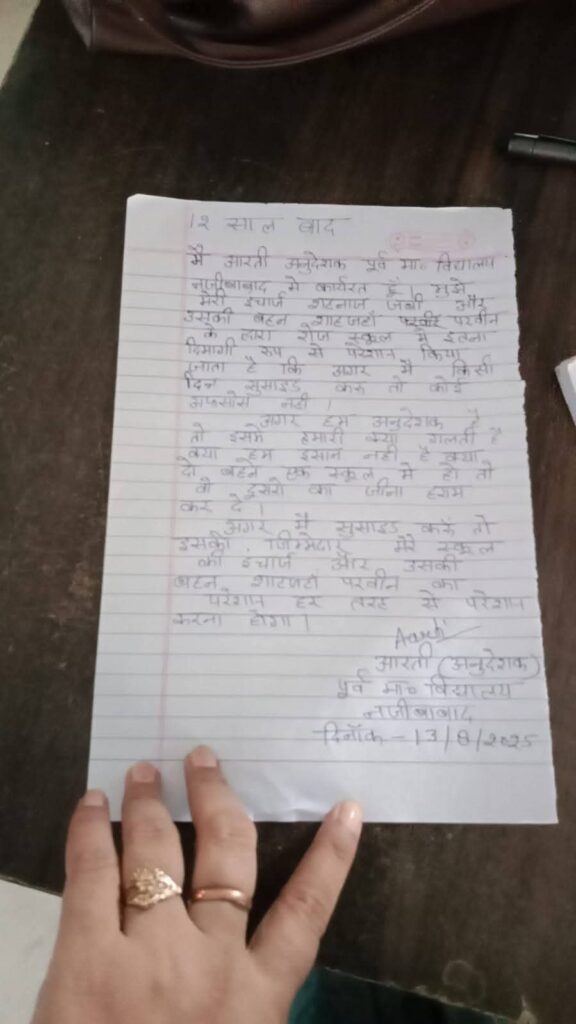 12 साल बाद
मै आरती अनुदेशक पूर्व मा० विद्यालय
नजीबाबाद मे कार्यरत हूँ। मुझे
मेरी इंचार्ज शहनाज जेबी और
उसकी बहन शाहजहाँ परवीन
के द्वारा रोज स्कूल मे इतना
दिमागी रूप से परेशान किया
जाता है कि अगर मै किसी
दिन सुसाइड करू तो कोई
अफसोस नही।
अगर हम अनुदेशक है
तो इसमे हमारी क्या गलती है
क्या हम इंसान नही है क्या
दो बहने एक स्कूल मे हो तो
वो दूसरो का जीना हराम
कर दे।
अगर मै सुसाइड करूं तो
इसकी जिम्मेदार मेरे स्कूल
की इंचार्ज और उसकी
बहन शाहजहां परवीन का
परेशान हर तरह से परेशान
करना होगा।
Aarti
आरती (अनुदेशक)
पूर्व मा० विद्यालय
नजीबाबाद
दिनाँक - 13/8/2025